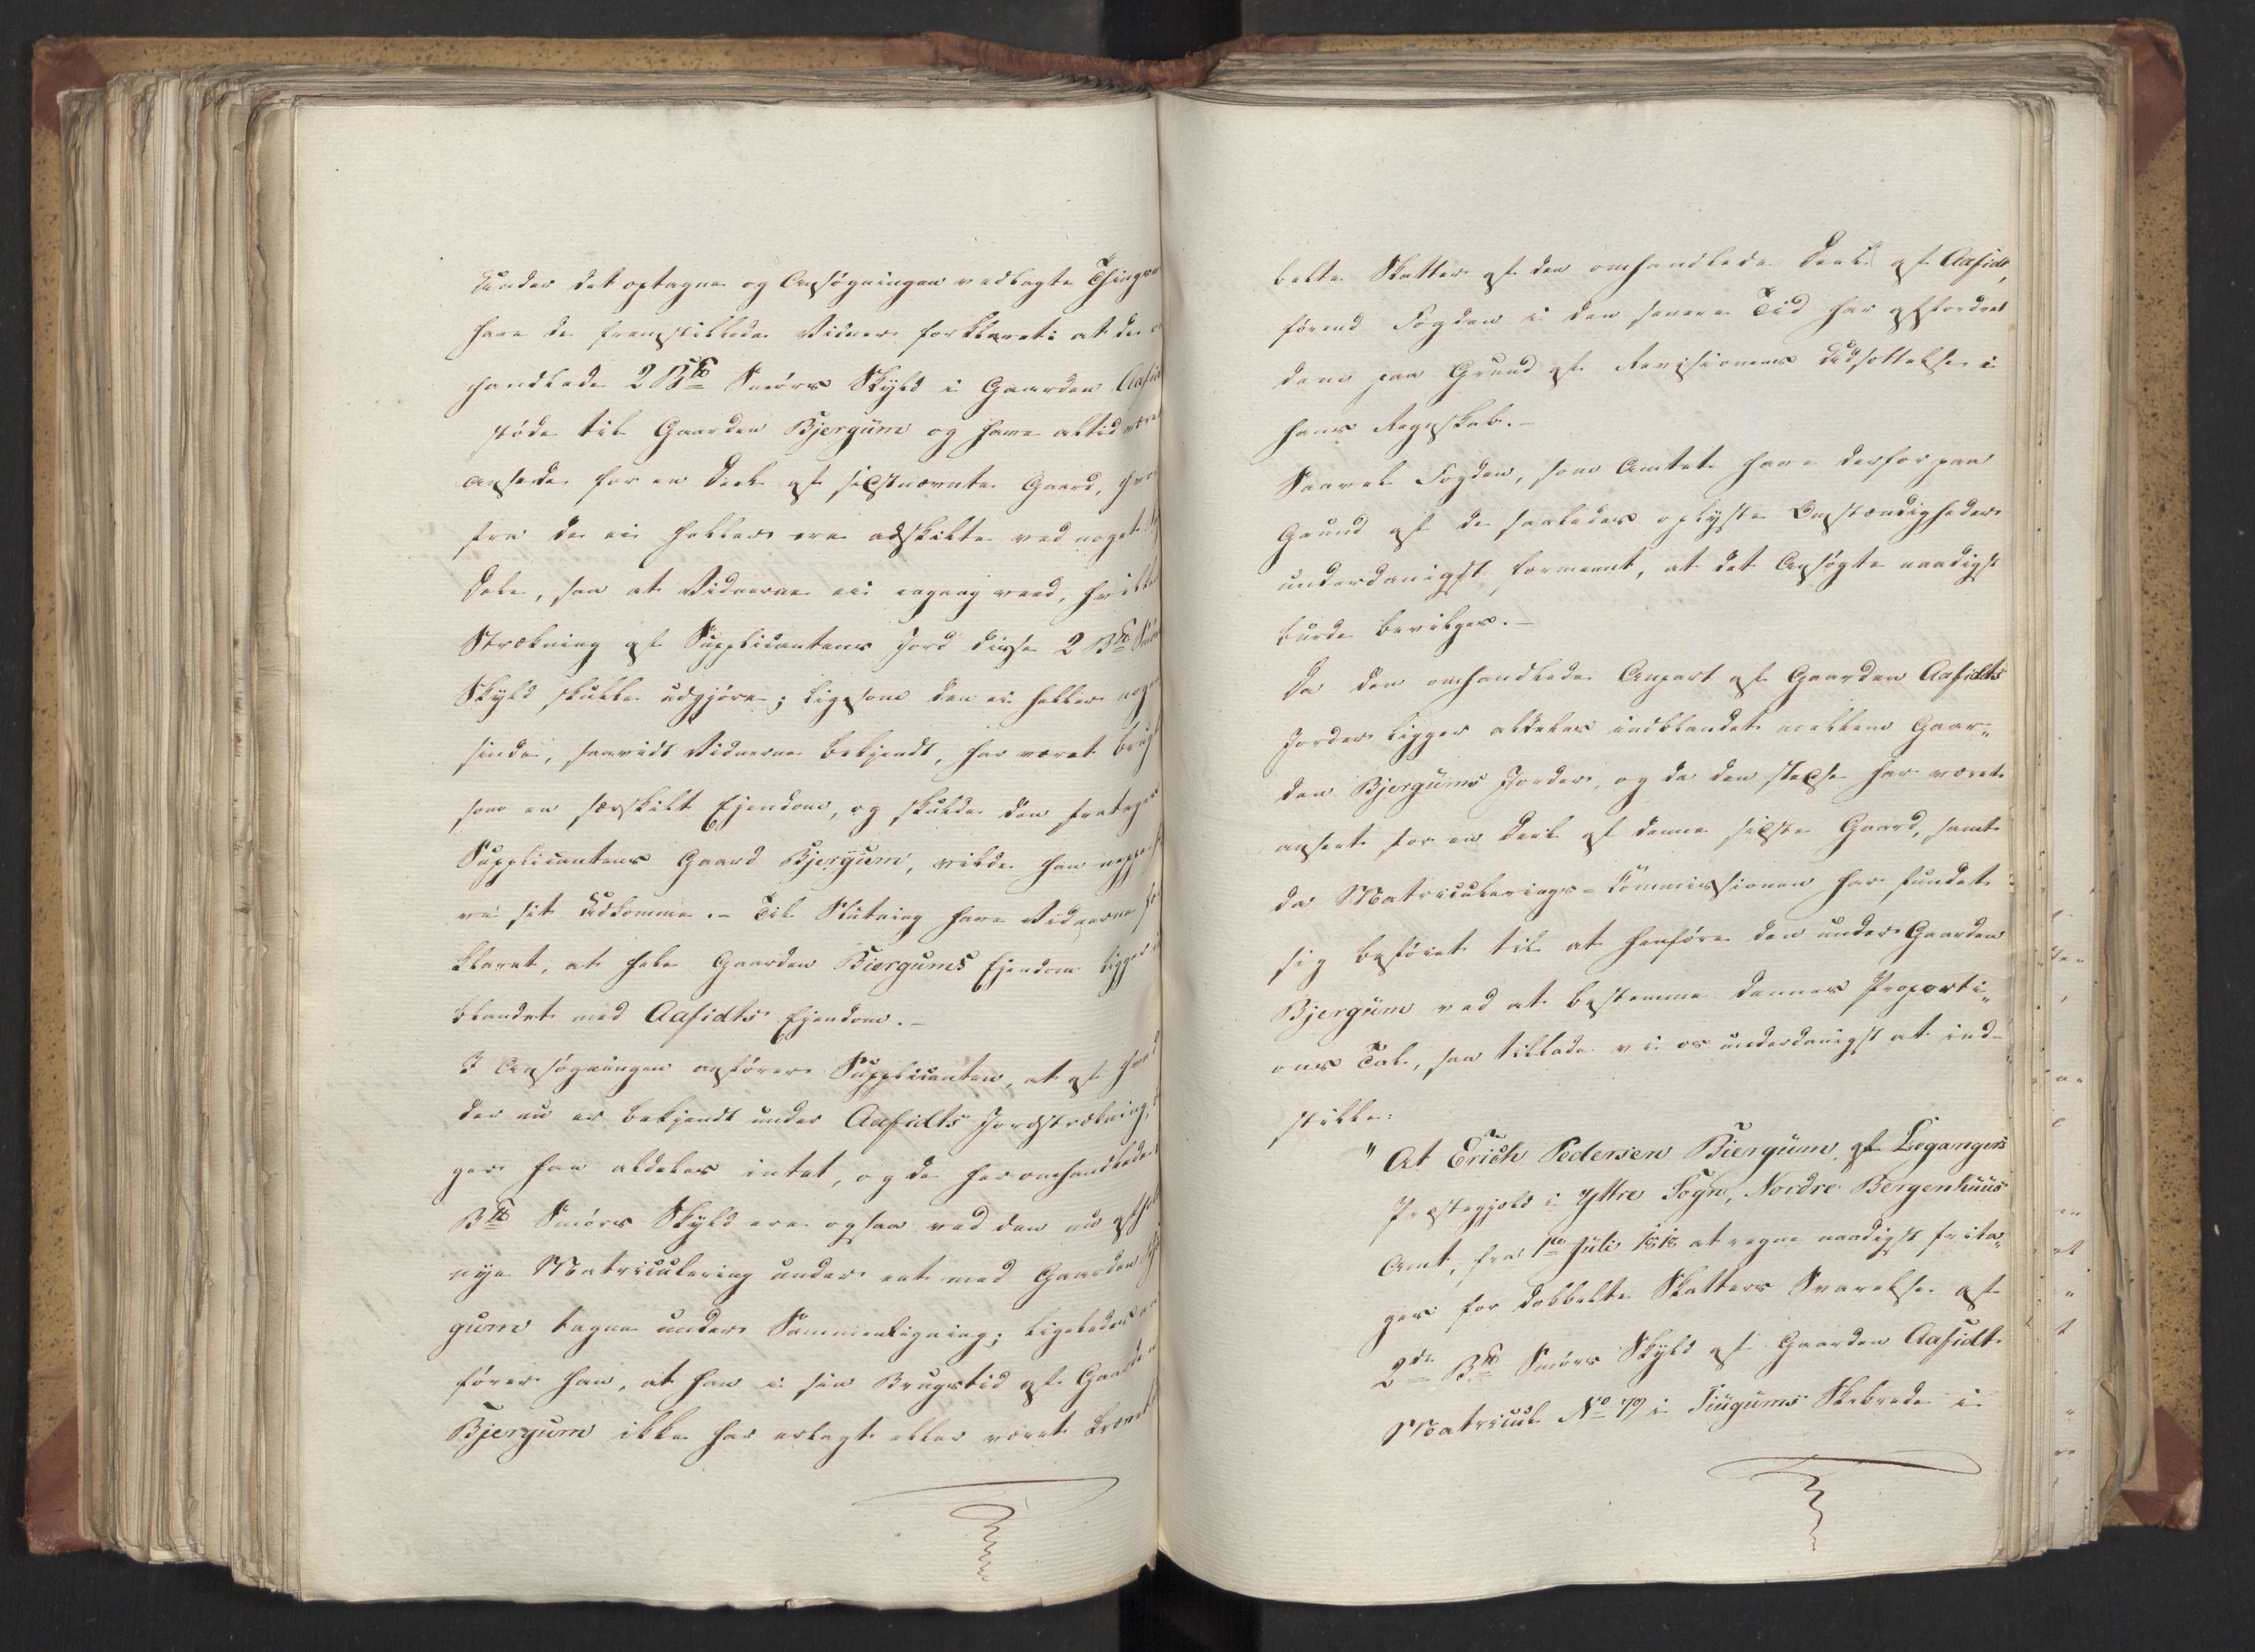 Under det optagne og Ansøgningen vedlagte Things
have de fremstillede Vidner forklaret: at de
handlede 2 Bp Smørs Skyld i Gaarden Aafid
støde til Gaarden Bjergum og have altid været
ansede for en Deel af sidstnævnte Gaard, hvor
fra de ei heller ere adskilte ved noget
Dele, saa at Vidnerne ei engang veed, hvilken
Strækning af Supplicantens Jord disse 2 Bp Smørs
Skyld skulle udgjøre; ligesom den ei heller nogen
sinde, saavidt Vidnerne bekjendt, har været brugt
som en særskilt Ejendom, og skulde den fratages
Supplicantens Gaard Bjergum, vilde han neppe
sit Udkomme. – Til Slutning have Vidnerne for
klaret, at hele Gaarden Biergums Ejendom ligger
blandet med Aafidts Ejendom. –
I Ansøgningen anfører Supplicanten, at af hvad
der nu er bekjendt under Aafidts Jordstrækning,
ger han aldeles intet, og de her omhandlede
Bp Smørs Skyld ere ogsaa ved den nu
nye Matriculering under eet med Gaarden
gum tagne under Sammenligning; ligeledes an
fører han, at han i sin Brugstid af Gaarden
Bjergum ikke har erlagt eller været krævet
belte Skatter af den omhandlede Deel af Aafidt,
førend Fogden i den senere Tid har affordret
dem paa Grund af Revisionens Udsættelse i
hans Regnskab. –
Saavel Fogden, som Amtet have derfor paa
Grund af de saaledes oplyste Omstændigheder
underdanigst formeent, at det Ansøgte naadigst
burde bevilges. –
Da den omhandlede Anpart af Gaarden Aafidts
Jorder ligger aldeles indblandet mellem Gaar„
den Bjergums Jorder, og da den stedse har været
anseet for en Deel af denne sidste Gaard, samt
da Matriculerings-Commissionen har fundet
sig beføiet til at henføre den under Gaarden
Bjergum ved at bestemme dennes Proporti„
ons Tal, saa tillade vi os underdanigst at ind-
stille:
"At Erich Pedersen Biergum, af Leganger's
Præstegjeld i Yttre Sogn, Nordre Bergenhuus
Amt, fra 1te Juli 1818 at regne naadigst frita„
ges for dobbelte Skatters Svarelse af
2de Bp Smørs Skyld af Gaarden Aafidt
Matricul No 79 i Tiugums Skibrede i